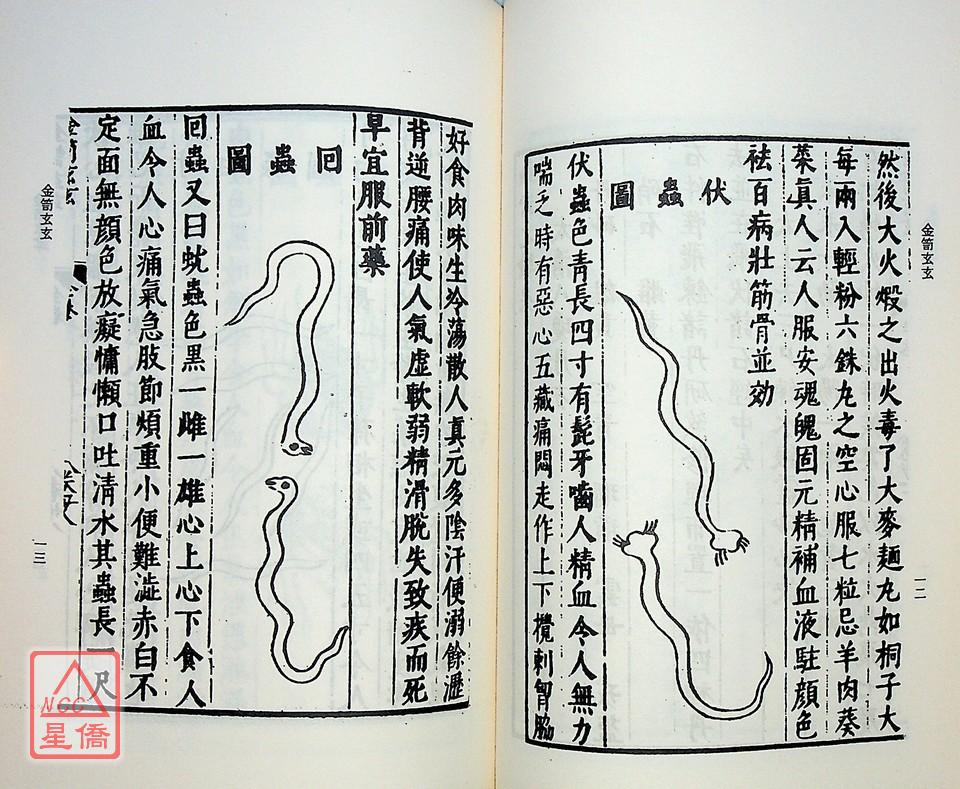 然後大火煅之出火毒了大麥麵丸如桐子大
每兩入輕粉六銖丸之空心服七粒忌羊肉葵
菜眞人云人服安魂魄固元精補血液駐顏色
祛百病壯筋骨並効
伏蟲圖
伏蟲色青長四寸有髭牙嚙人精血令人無力
喘乏時有惡心五藏痛悶走作上下攪刺胷脇
金笥玄玄
一二
好食肉味生冷蕩散人真元多陰汗便溺餘瀝
背逆腰痛使人氣虛軟弱精滑脫失致疾而死
早宜服前藥
回蟲圖
回蟲又曰蚘蟲色黑一雌一雄心上心下食人
血令人心痛氣急肢節煩重小便難澁赤白不
定面無顏色放癡慵懶口吐清水其蟲長一尺
金笥玄玄
金笥玄玄
一三
NCC
星僑